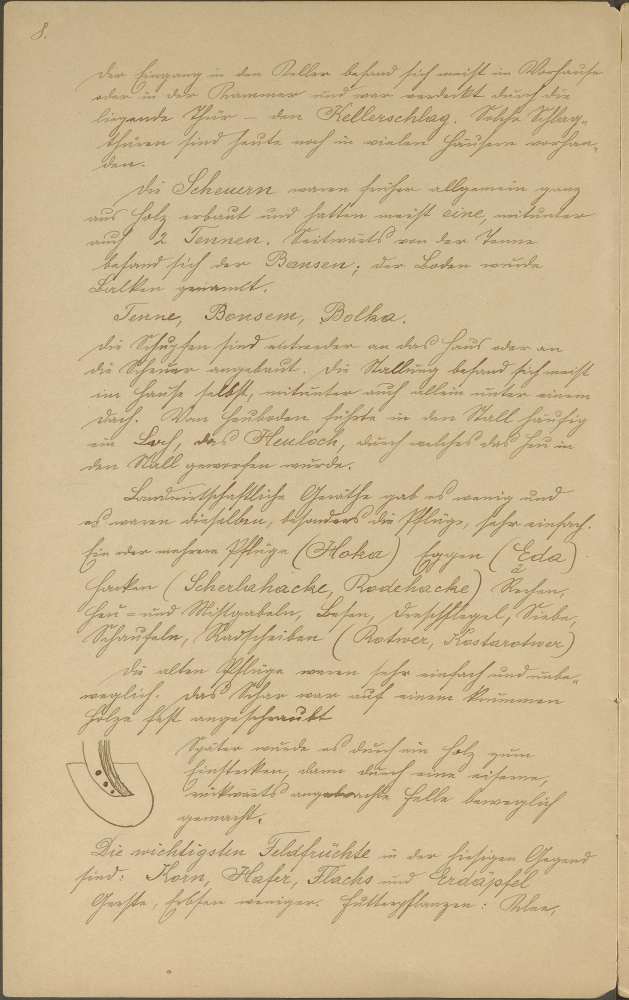 8.
Der Eingang in den Keller befand sich meist im Vorhause
oder in der Kammer und war verdeckt durch die
liegende Thür – den Kellerschlag. Solche Schlag-
thüren sind heute noch in vielen Häusern vorhan-
den.
Die Scheuern waren früher allgemein ganz
aus Holz erbaut und hatten meist eine, mitunter
auch 2 Tennen. Seitwärts von der Tenne
befand sich der Bansen; der Boden wurde
Balken genannt.
Tenne, Bonsem, Bolka.
Die Schupfen sind entweder an das Haus oder an
die Scheuer angebaut. Die Stallung befand sich meist
im Hause selbst, mitunter auch allein unter einem
Dach. Vom Heuboden führte in den Stall häufig
ein Loch, das Heuloch, durch welches das Heu in
den Stall geworfen wurde.
Landwirtschaftliche Geräthe gab es wenig und
es waren dieselben, besonders die Pflüge, sehr einfach.
Ein oder mehrere Pflüge (Hoka) Eggen (Eda)
Hacken (Scherlahacke, Rodehacke) Rechen,
Heu- und Mistgabeln, Besen, Dreschflegel, Siebe,
Schaufeln, Radscheiben (Rotwer, Kostarotwer)
Die alten Pflüge waren sehr einfach und unbe-
weglich. Das Schar war auf einem krummen
Holze fest angeschraubt
Später wurde es durch ein Holz zum
Einstecken, dann durch eine eiserne,
rückwärts angebrachte Felle beweglich
gemacht.
Die wichtigsten Feldfrüchte in der hiesigen Gegend
sind: Korn, Hafer, Flachs und Erdäpfel
Gerste, Erbsen weniger. Futterpflanzen: Klee,